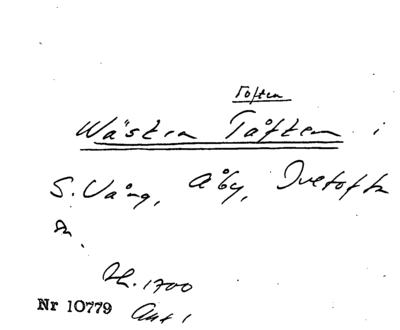 Toften
Wästra Tåften i
S. Vång, Åby, Ivetofta
sn.
Lh. 1700
Nr 10779 Akt 1